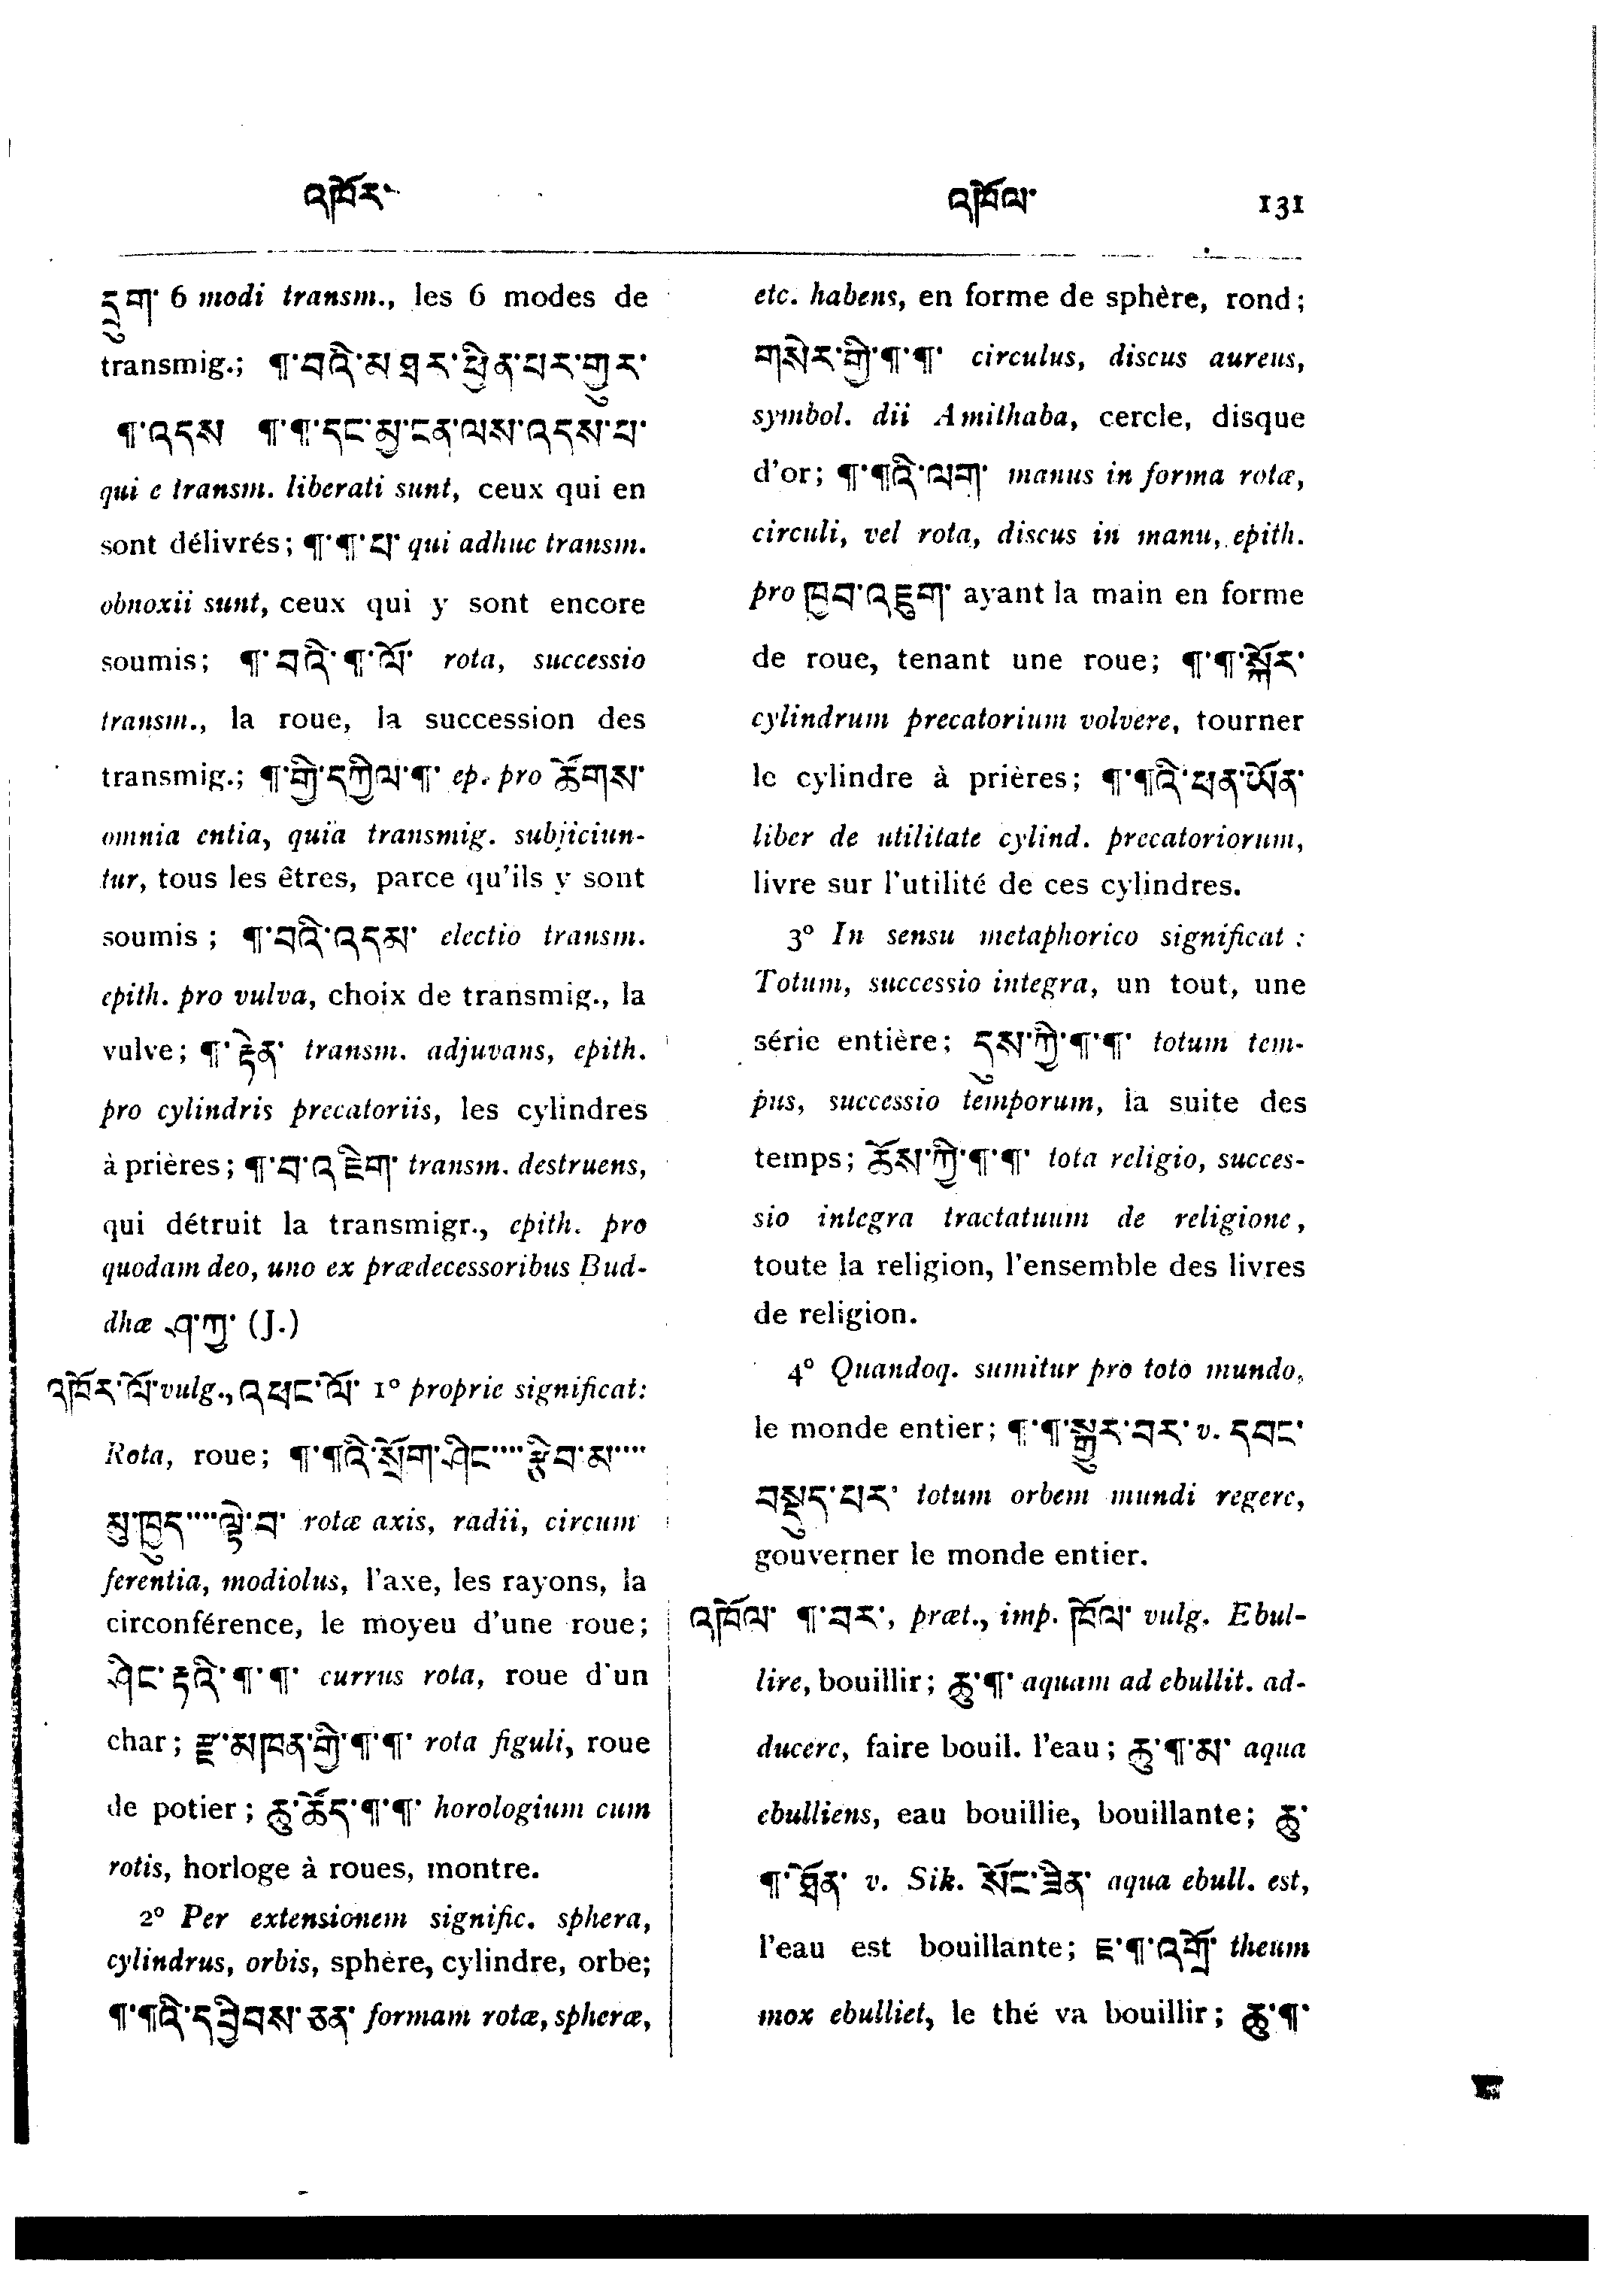 འཁོར་
འཁོལ་
131
དྲུག་ 6 modi transm., les 6 modes de
transmig.; ༶་བའི་མ་ཐར་ཕྱིན་པར་གྱུར་
༶་འདས ༶་༶་དང་མྱ་ངན་ལས་འདས་པ་
qui e transm. liberati sunt, ceux qui en
sont délivrés; ༶་༶་པ་ qui adhuc transm.
obnoxii sunt, ceux qui y sont encore
soumis; ༶་བའི་༶་ལོ་ rota, successio
transm., la roue, la succession des
transmig.; ༶་གྱི་དཀྱིལ་༶་ ep. pro ཚོགས་
omnia entia, quia transmig. subjiciun-
tur, tous les êtres, parce qu'ils y sont
soumis; ༶་བའི་འདམ་ electio transm.
epith. pro vulva, choix de transmig., la
vulve; ༶་རྟེན་ transm. adjuvans, epith.
pro cylindris precatoriis, les cylindres
à prières; ༶་བ་འཇིག་ transm. destruens,
qui détruit la transmigr., epith. pro
quodam deo, uno ex prædecessoribus Bud-
dhæ ཤ་ཀྱ་ (J.)
འཁོར་ལོ་ vulg., འཕང་ལོ་ 1° proprie significat:
Rota, roue; ༶་༶འི་སྲོག་ཤིང་···· རྩིབ་མ་····
མུ་ཁྱུད་····ལྟེ་བ་ rotæ axis, radii, circum
ferentia, modiolus, l'axe, les rayons, la
circonférence, le moyeu d'une roue;
ཤིང་རྟའི་༶་༶་ currus rota, roue d'un
char; རྫ་མཁན་གྱི་༶་༶་ rota figuli, roue
de potier; ཆུ་ཚོད་༶་༶་ horologium cum
rotis, horloge à roues, montre.
2° Per extensionem signific. sphera,
cylindrus, orbis, sphère, cylindre, orbe;
༶་༶འི་དབྱིབས་ཅན་ formam rotæ, spheræ,
etc. habens, en forme de sphère, rond;
གསེར་གྱི་༶་༶་ circulus, discus aureus,
symbol. dii Amithaba, cercle, disque
d'or; ༶་༶འི་ལག་ manus in forma rotæ,
circuli, vel rota, discus in manu, epith.
pro ཁྱབ་འཇུག་ ayant la main en forme
de roue, tenant une roue; ༶་༶་སྐོར་
cylindrum precatorium volvere, tourner
le cylindre à prières; ༶་༶འི་ཕན་ཡོན་
liber de utilitate cylind. precatoriorum,
livre sur l'utilité de ces cylindres.
3° In sensu metaphorico significat :
Totum, successio integra, un tout, une
série entière; དུས་ཀྱི་༶་༶་ totum tem-
pus, successio temporum, la suite des
temps; ཆོས་ཀྱི་༶་༶་ tota religio, succes-
sio integra tractatuum de religione,
toute la religion, l'ensemble des livres
de religion.
4° Quandoq. sumitur pro toto mundo,
le monde entier; ༶་༶་སྒྱུར་བར་ v. དབང་
བསྡུད་པར་ totum orbem mundi regere,
gouverner le monde entier.
འཁོལ་ ༶་བར་, præt., imp. ཁོལ་ vulg. Ebul-
lire, bouillir; ཆུ་༶་ aquam ad ebullit. ad-
ducere, faire bouil. l'eau; ཆུ་༶་མ་ aqua
ebulliens, eau bouillie, bouillante; ཆུ་
༶་ཐོན་ v. Sik. སོང་ཟིན་ aqua ebull. est,
l'eau est bouillante; ཇ་༶་འགྲོ་ theum
mox ebulliet, le thé va bouillir; ཆུ་༶་